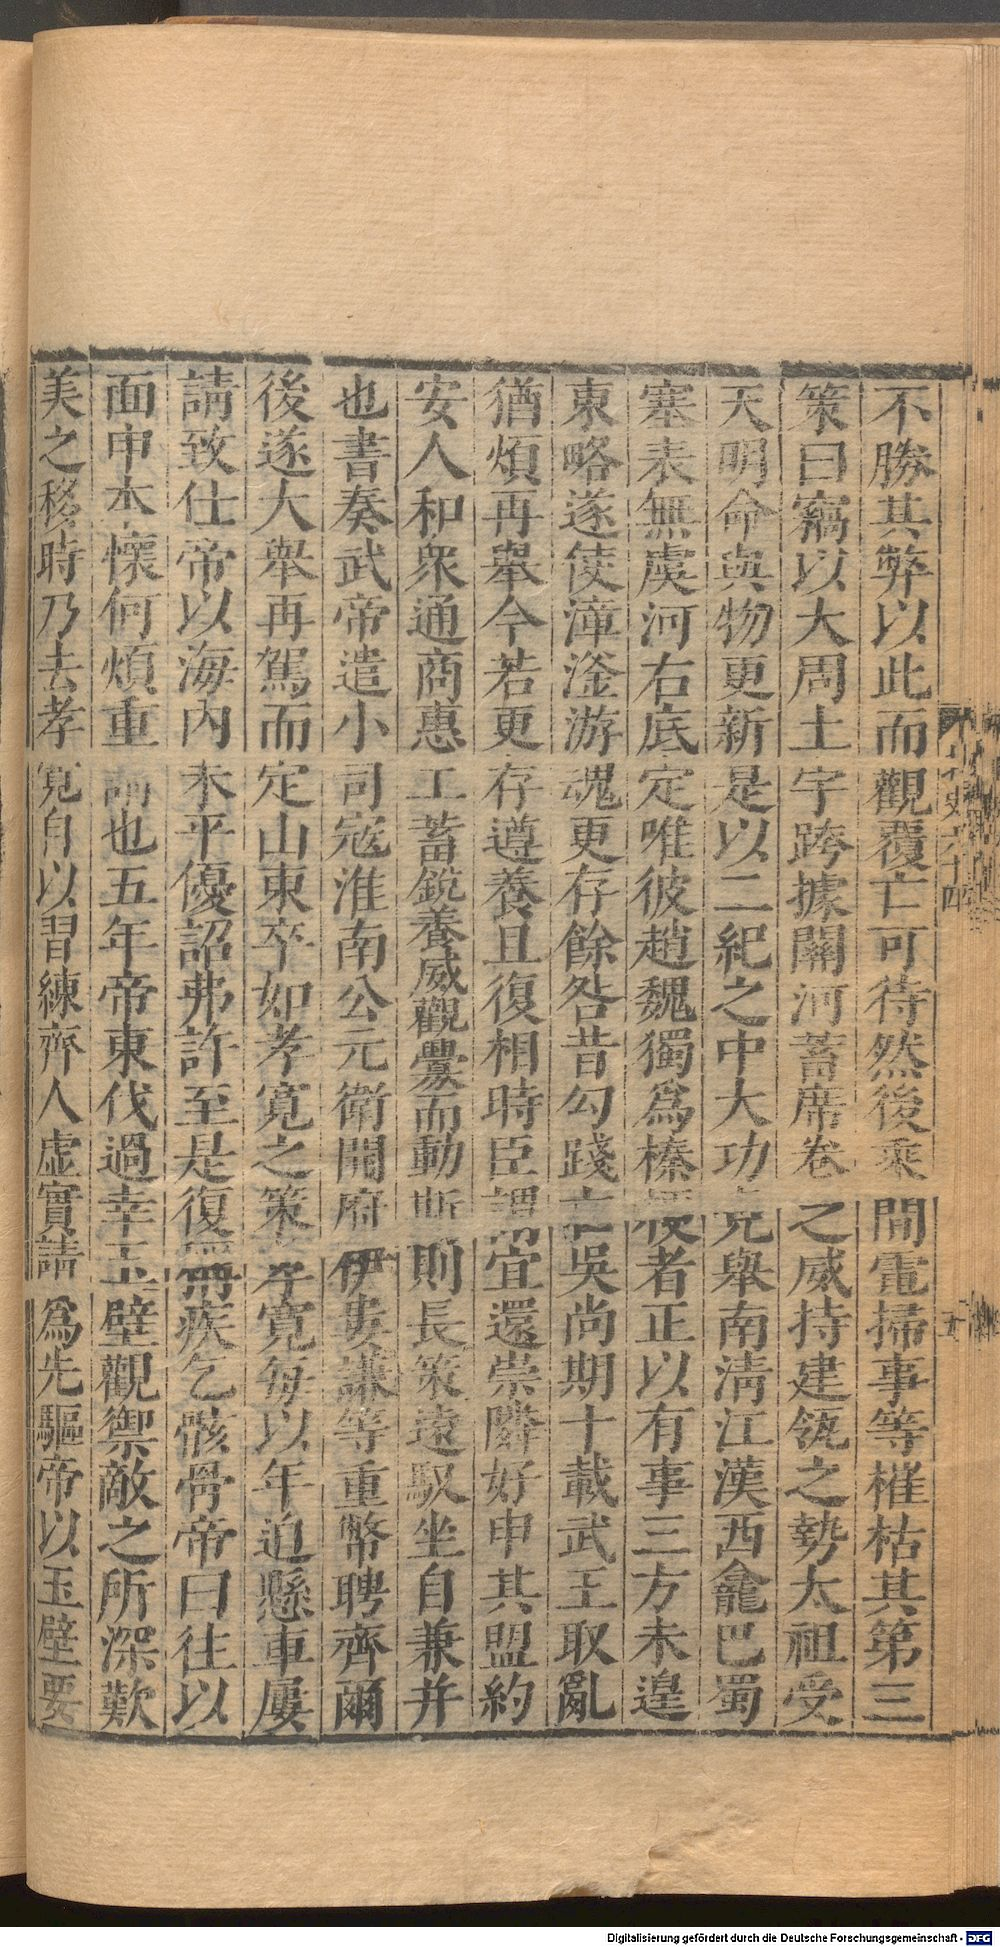 不勝其弊以此而觀覆亡可待然後乘間電掃事等摧枯其第三
策曰竊以大周土宇跨據關河蓄席卷之威持建瓴之勢太祖受
天明命與物更新是以二紀之中大功克舉南淸江漢西龕巴蜀
塞表無虞河右底定唯彼趙魏獨爲榛梗者正以有事三方未遑
東略遂使漳滏游魂更存餘咎昔勾踐亡吳尚期十載武王取亂
猶煩再舉今若更存遵養且復相時臣謂宜還崇隣好申其盟約
安人和衆通商惠工蓄銳養威觀釁而動斯則長策遠馭坐自兼并
也書奏武帝遣小司寇淮南公元衛開府伊婁謙等重幣聘齊爾
後遂大舉再駕而定山東卒如孝寬之策孝寬每以年迫懸車屢
請致仕帝以海內未平優詔弗許至是復稱疾乞骸骨帝曰往以
面申本懷何煩重請也五年帝東伐過幸玉壁觀禦敵之所深歎
美之移時乃去孝寬自以習練齊人虛實請爲先驅帝以玉壁要
史六十四
十五
Digitalisierung gefördert durch die Deutsche Forschungsgemeinschaft - DFG